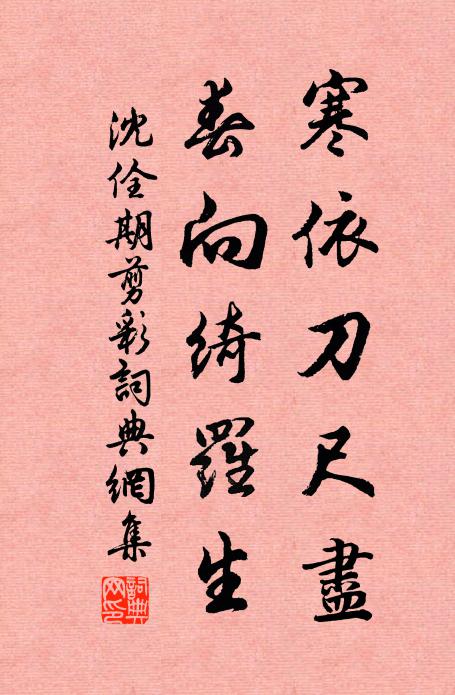 寒依刀尺盡
春向綺羅生
沈佺期剪彩詞典網集
詞典網印